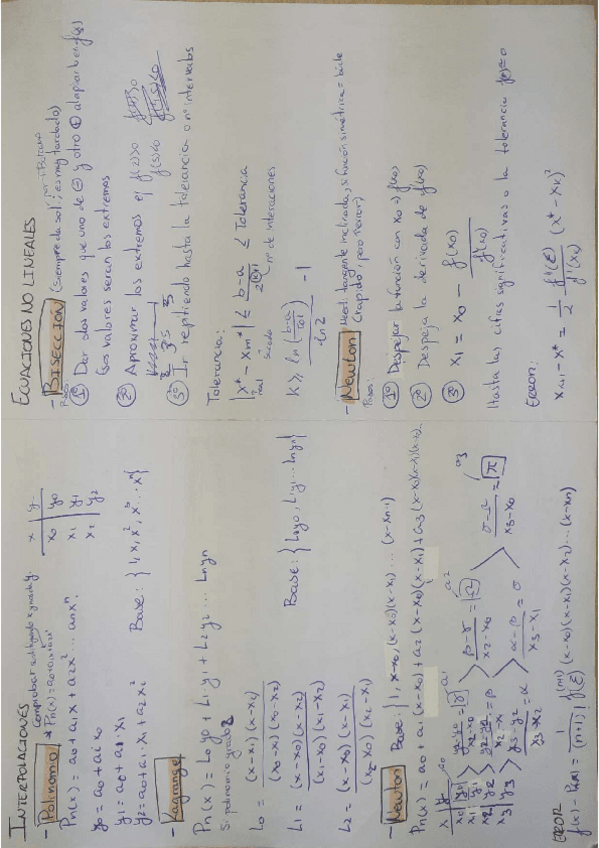 INTERPOLACIONES
- Polinomio * Comprobar sustituyendo x y resulte y.
Pn(x) = a0 + a1x + a2x²
Pn(x) = a0 + a1x + a2x² ... anxⁿ
x | y
x0 | y0
x1 | y1
x2 | y2
y0 = a0 + a1x0
y1 = a0 + a1·x1
y2 = a0 + a1·x1 + a2x2²
Base: {1, x, x², x³ ... xⁿ}
- Lagrange
Pn(x) = L0y0 + L1y1 + L2y2 ... Lnyn
Si polinomio grado 2
L0 = (x-x1)(x-x2) / (x0-x1)(x0-x2)
L1 = (x-x0)(x-x2) / (x1-x0)(x1-x2)
L2 = (x-x0)(x-x1) / (x2-x0)(x2-x1)
Base: {L0y0, L1y1 ... Lnyn}
- Newton Base: {1, x-x0, (x-x0)(x-x1) ... (x-xn-1)}
Pn(x) = a0 + a1(x-x0) + a2(x-x0)(x-x1) + a3(x-x0)(x-x1)(x-x2)
x | y a0 a1 a2 a3
x0 | y0
x1 | y1
x2 | y2
x3 | y3
y1-y0 / x1-x0 = γ
y2-y1 / x2-x1 = β
y3-y2 / x3-x2 = α
β-γ / x2-x0 = Ω
α-β / x3-x1 = σ
σ-Ω / x3-x0 = π
ERROR
f(x) - Pn(x) = 1 / (n+1)! f⁽ⁿ⁺¹⁾(ξ) (x-x0)(x-x1)(x-x2) ... (x-xn)
ECUACIONES NO LINEALES
- BISECCIÓN (siempre da sol., es muy tardado)
Pasos:
1º Dar dos valores que uno de ⊖ y otro ⊕ al aplicar en f(x)
Esos valores serán los extremos
2º Aproximar los extremos ej f(2)>0
f(5)<0
2 3'5 5
3º Ir repitiendo hasta la tolerancia o nº intervalos
Tolerancia:
|x* - xm*| ≤ b-a / 2^(k+1) ≤ Tolerancia
real
nº de interaciones
k ≥ ln((b-a)/Tol) / ln 2 - 1
- Newton
(rápido, pero)
Pasos:
1º Despejar la función con x0 → f(x0)
2º Despeja la derivada de f(x0)
3º x1 = x0 - f(x0) / f'(x0)
Hasta las cifras significativas o la tolerancia f(x)=0
Error:
xk+1 - x* = 1/2 f''(ξ) / f'(xk) (x* - xk)²